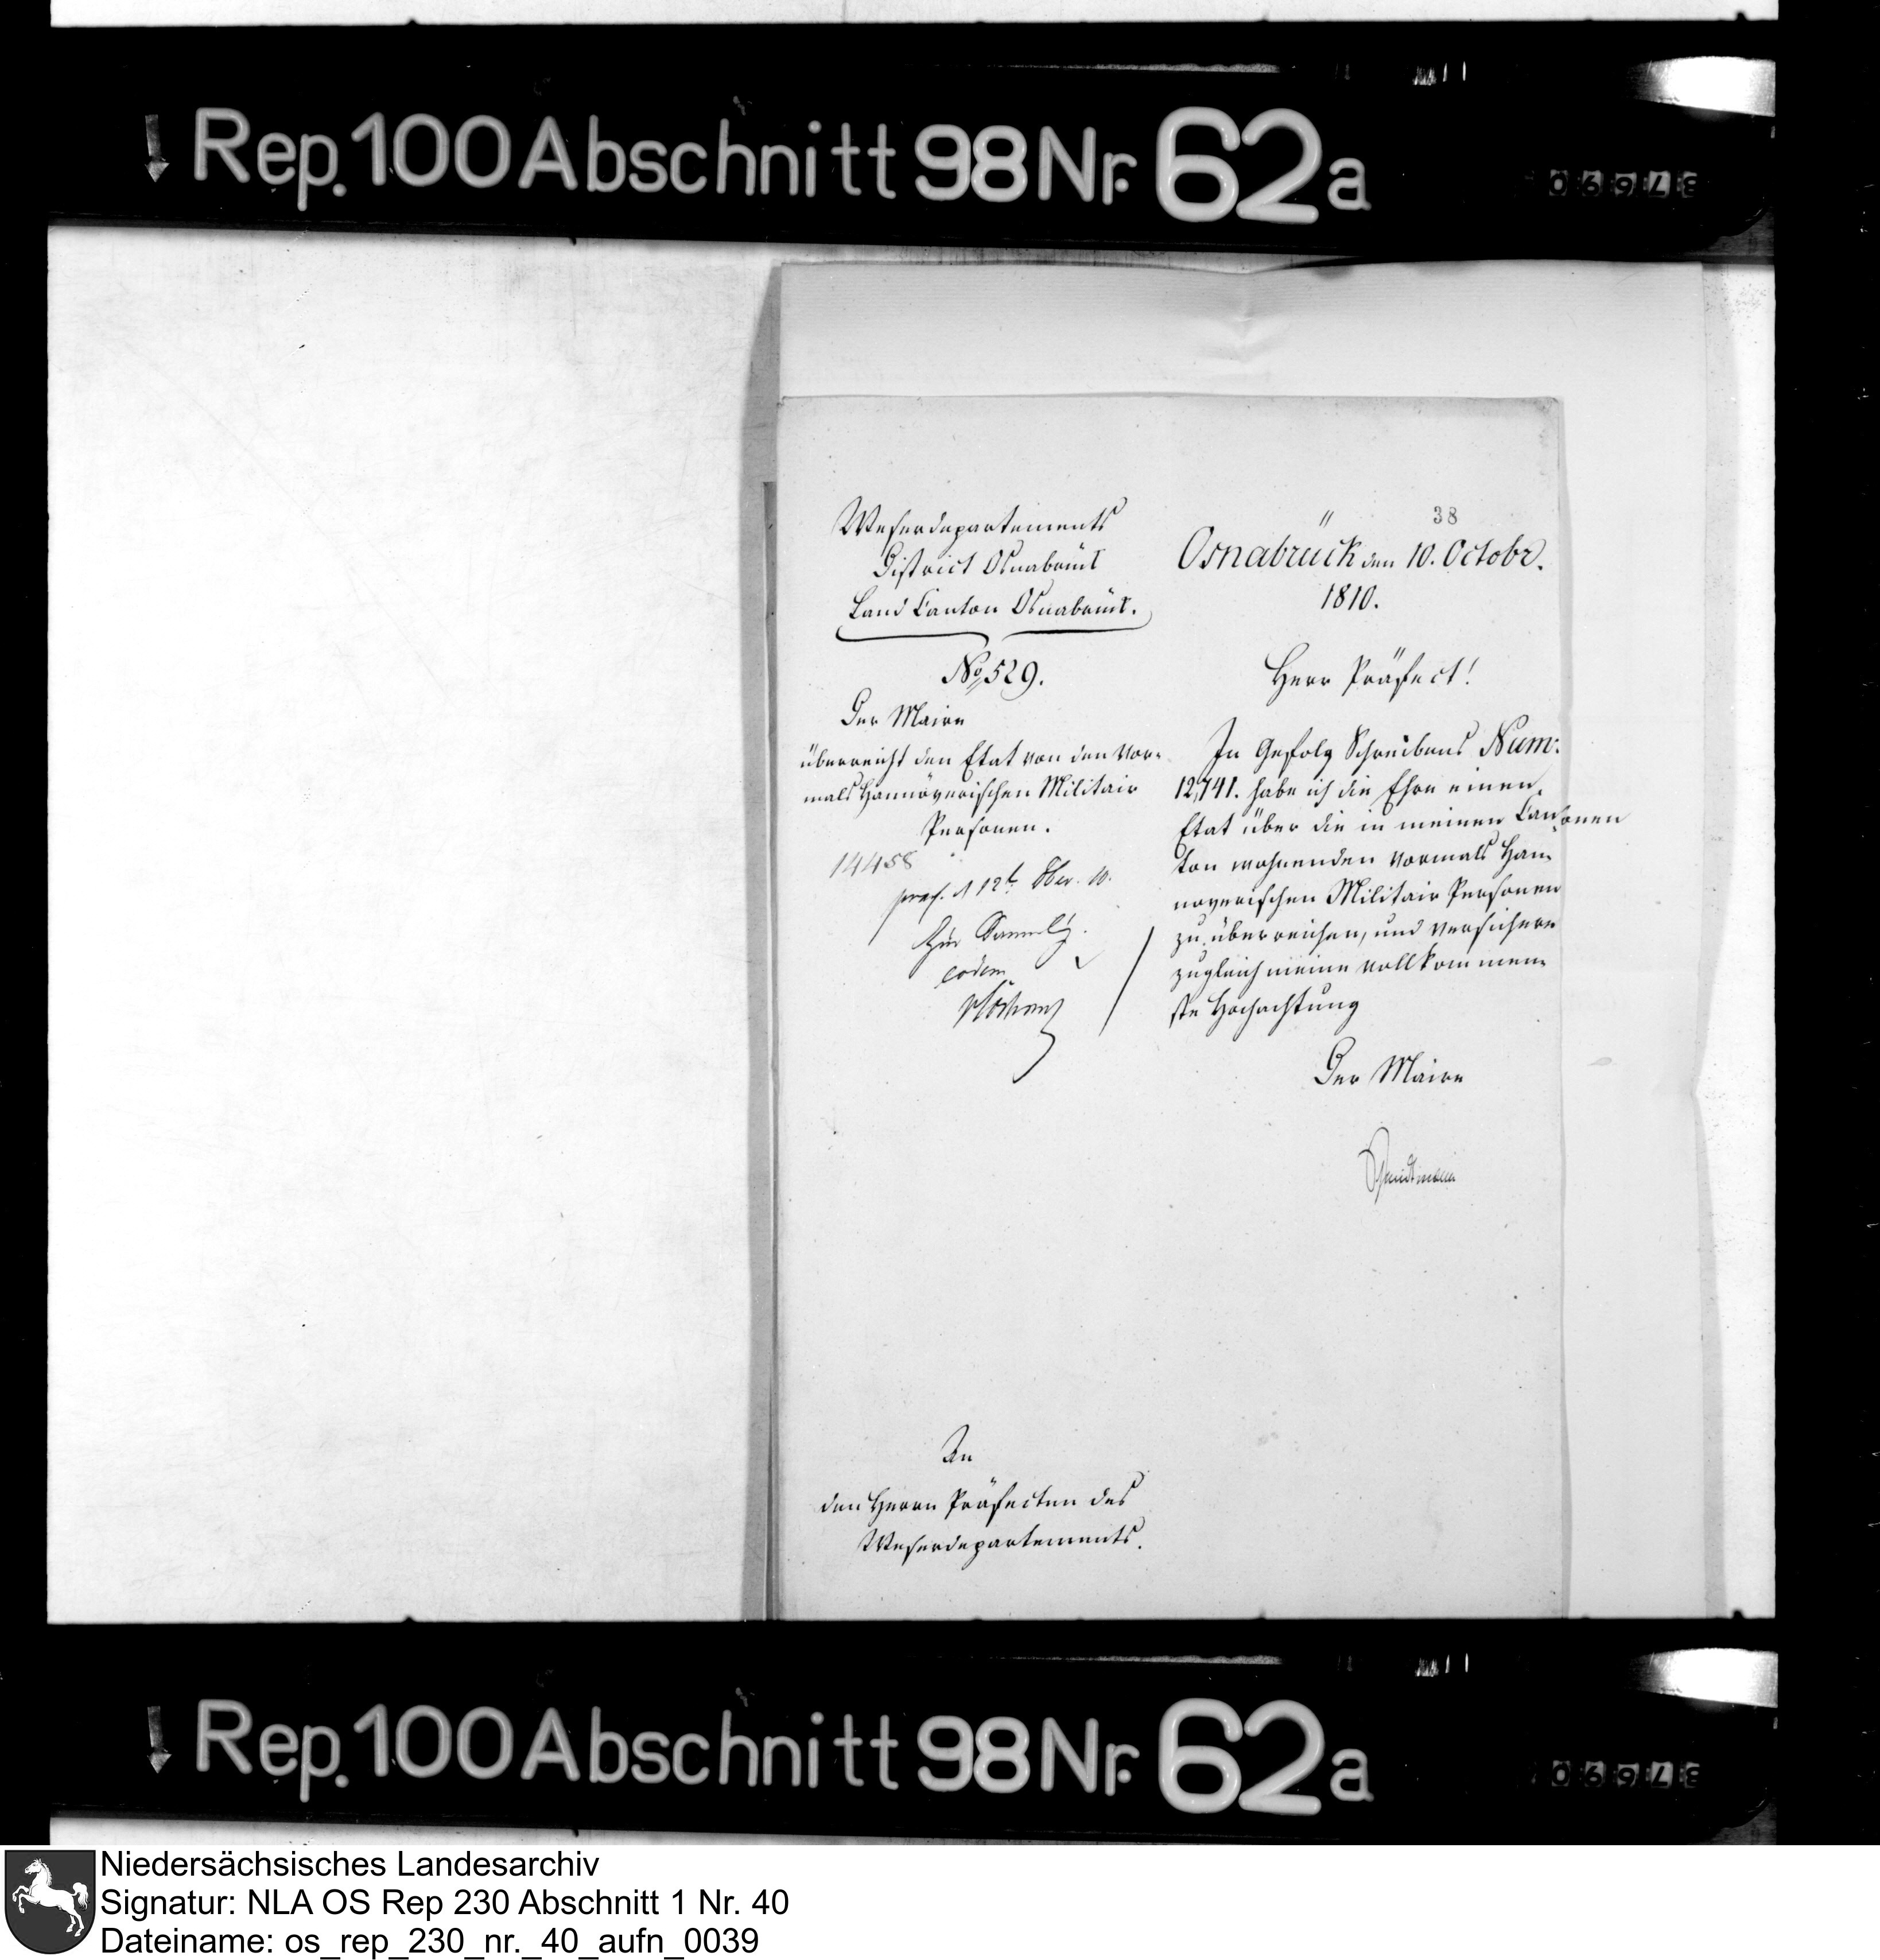 Rep. 100 Abschnitt 98 Nr. 62a
38
Weserdepartements
District Osnabrück
Land Canton Osnabrück.
No 529.
Der Maire
überreicht den Etat von den vor-
mals Hannöverischen Militair
Personen.
14458
praes. d 12t. 8ber. 10.
Zur Samml.
eodem
Osnabrück den 10. Octobr.
1810.
Herr Präfect!
In Gefolg Schreibens Num:
12,741. habe ich die Ehre einen
Etat über die in meinen Can-
ton wohnenden vormals Han-
noverischen Militair Personen
zu überreichen, und versichere
zugleich meine vollkommen-
ste Hochachtung
Der Maire
An
den Herrn Präfecten des
Weserdepartements.
Rep. 100 Abschnitt 98 Nr. 62a
Niedersächsisches Landesarchiv
Signatur: NLA OS Rep 230 Abschnitt 1 Nr. 40
Dateiname: os_rep_230_nr._40_aufn_0039